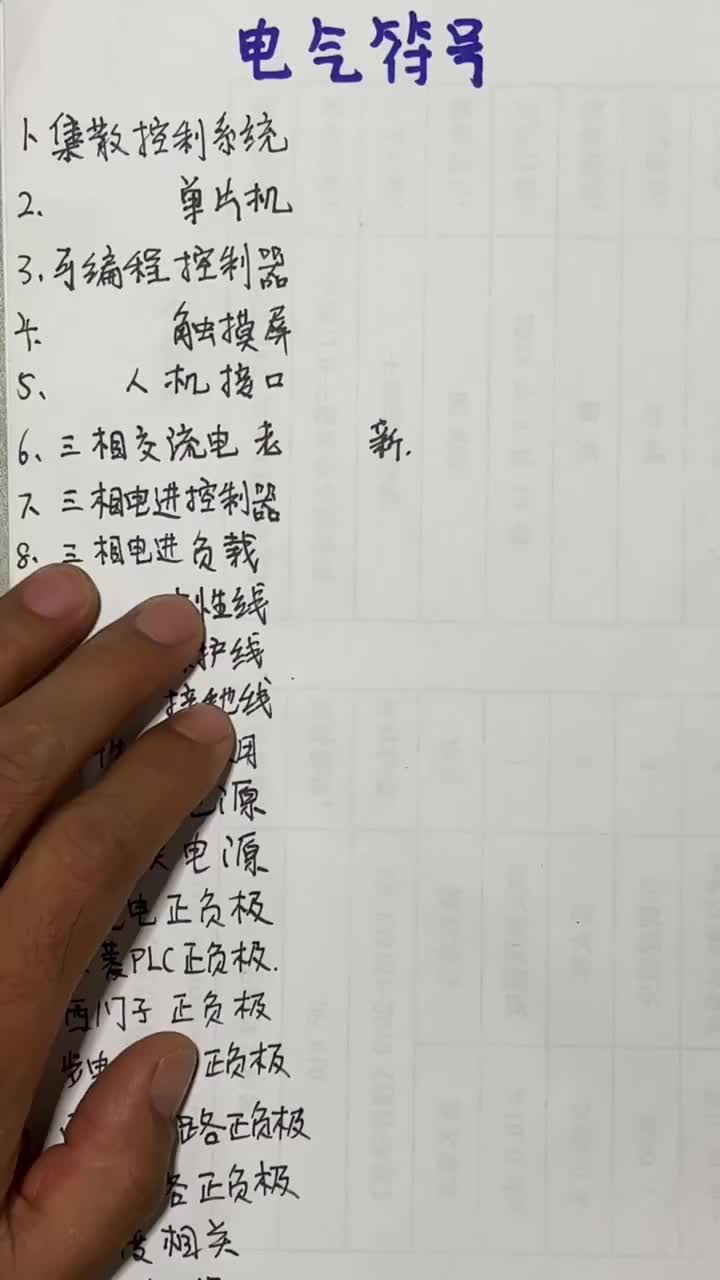 电气符号
1、集散控制系统
2、 单片机
3、可编程控制器
4、 触摸屏
5、 人机接口
6、三相交流电 老 新.
7、三相电进控制器
8、三相电进负载
性线
护线
接地线
用
源
电源
电正负极
菱PLC正负极.
西门子 正负极
正负极
路各正负极
各正负极
相关